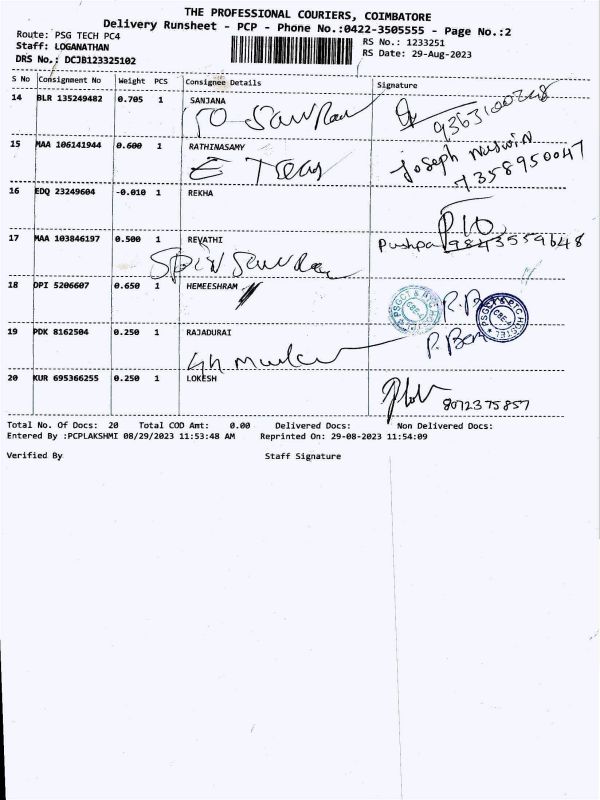 THE PROFESSIONAL COURIERS, COIMBATORE
Delivery Runsheet - PCP - Phone No.:0422-3505555 - Page No.:2
Route: PSG TECH PC4
RS No.: 1233251
Staff: LOGANATHAN
RS Date: 29-Aug-2023
DRS No.: DCJB123325102
S No Consignment No Weight PCS Consignee Details Signature
14 BLR 135249482 0.705 1 SANJANA
15 MAA 106141944 0.600 1 RATHINASAMY
Joseph
7358950047
16 EDQ 23249604 -0.010 1 REKHA
17 MAA 103846197 0.500 1 REVATHI
Pushpa 9843559648
18 DPI 5206607 0.650 1 HEMEESHRAM
19 PDK 8162504 0.250 1 RAJADURAI
20 KUR 695366255 0.250 1 LOKESH
8072375857
Total No. Of Docs: 20 Total COD Amt: 0.00 Delivered Docs: Non Delivered Docs:
Entered By :PCPLAKSHMI 08/29/2023 11:53:48 AM Reprinted On: 29-08-2023 11:54:09
Verified By Staff Signature